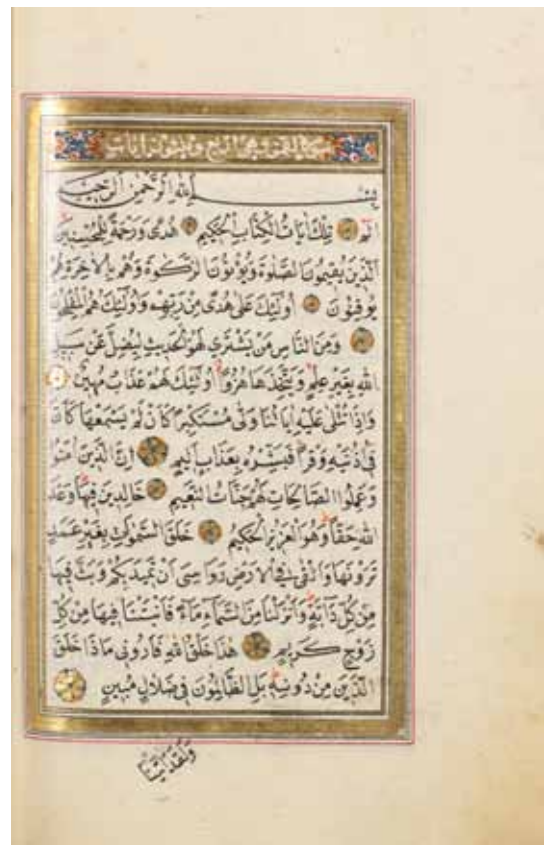 سورة لقمن وهي اربع وثلثون ايات
بِسْمِ اللهِ الرَّحْمٰنِ الرَّحِيمِ
الٓمٓ تِلْكَ اٰيَاتُ الْكِتَابِ الْحَكِيمِ هُدًى وَرَحْمَةً لِلْمُحْسِنِينَ
اَلَّذِينَ يُقِيمُونَ الصَّلٰوةَ وَيُؤْتُونَ الزَّكٰوةَ وَهُمْ بِالْاٰخِرَةِ هُمْ
يُوقِنُونَ اُولٰئِكَ عَلٰى هُدًى مِنْ رَبِّهِمْ وَاُولٰئِكَ هُمُ الْمُفْلِحُونَ
وَمِنَ النَّاسِ مَنْ يَشْتَرِي لَهْوَ الْحَدِيثِ لِيُضِلَّ عَنْ سَبِيلِ
اللهِ بِغَيْرِ عِلْمٍ وَيَتَّخِذَهَا هُزُوًا اُولٰئِكَ لَهُمْ عَذَابٌ مُهِينٌ
وَاِذَا تُتْلٰى عَلَيْهِ اٰيَاتُنَا وَلّٰى مُسْتَكْبِرًا كَاَنْ لَمْ يَسْمَعْهَا كَاَنَّ
فِي اُذُنَيْهِ وَقْرًا فَبَشِّرْهُ بِعَذَابٍ اَلِيمٍ اِنَّ الَّذِينَ اٰمَنُوا
وَعَمِلُوا الصَّالِحَاتِ لَهُمْ جَنَّاتُ النَّعِيمِ خَالِدِينَ فِيهَا وَعْدَ
اللهِ حَقًّا وَهُوَ الْعَزِيزُ الْحَكِيمُ خَلَقَ السَّمٰوَاتِ بِغَيْرِ عَمَدٍ
تَرَوْنَهَا وَاَلْقٰى فِي الْاَرْضِ رَوَاسِيَ اَنْ تَمِيدَ بِكُمْ وَبَثَّ فِيهَا
مِنْ كُلِّ دَابَّةٍ وَاَنْزَلْنَا مِنَ السَّمَاءِ مَاءً فَاَنْبَتْنَا فِيهَا مِنْ كُلِّ
زَوْجٍ كَرِيمٍ هٰذَا خَلْقُ اللهِ فَاَرُونِي مَاذَا خَلَقَ
الَّذِينَ مِنْ دُونِهِ بَلِ الظَّالِمُونَ فِي ضَلَالٍ مُبِينٍ
وَلَقَدْ اٰتَيْنَا